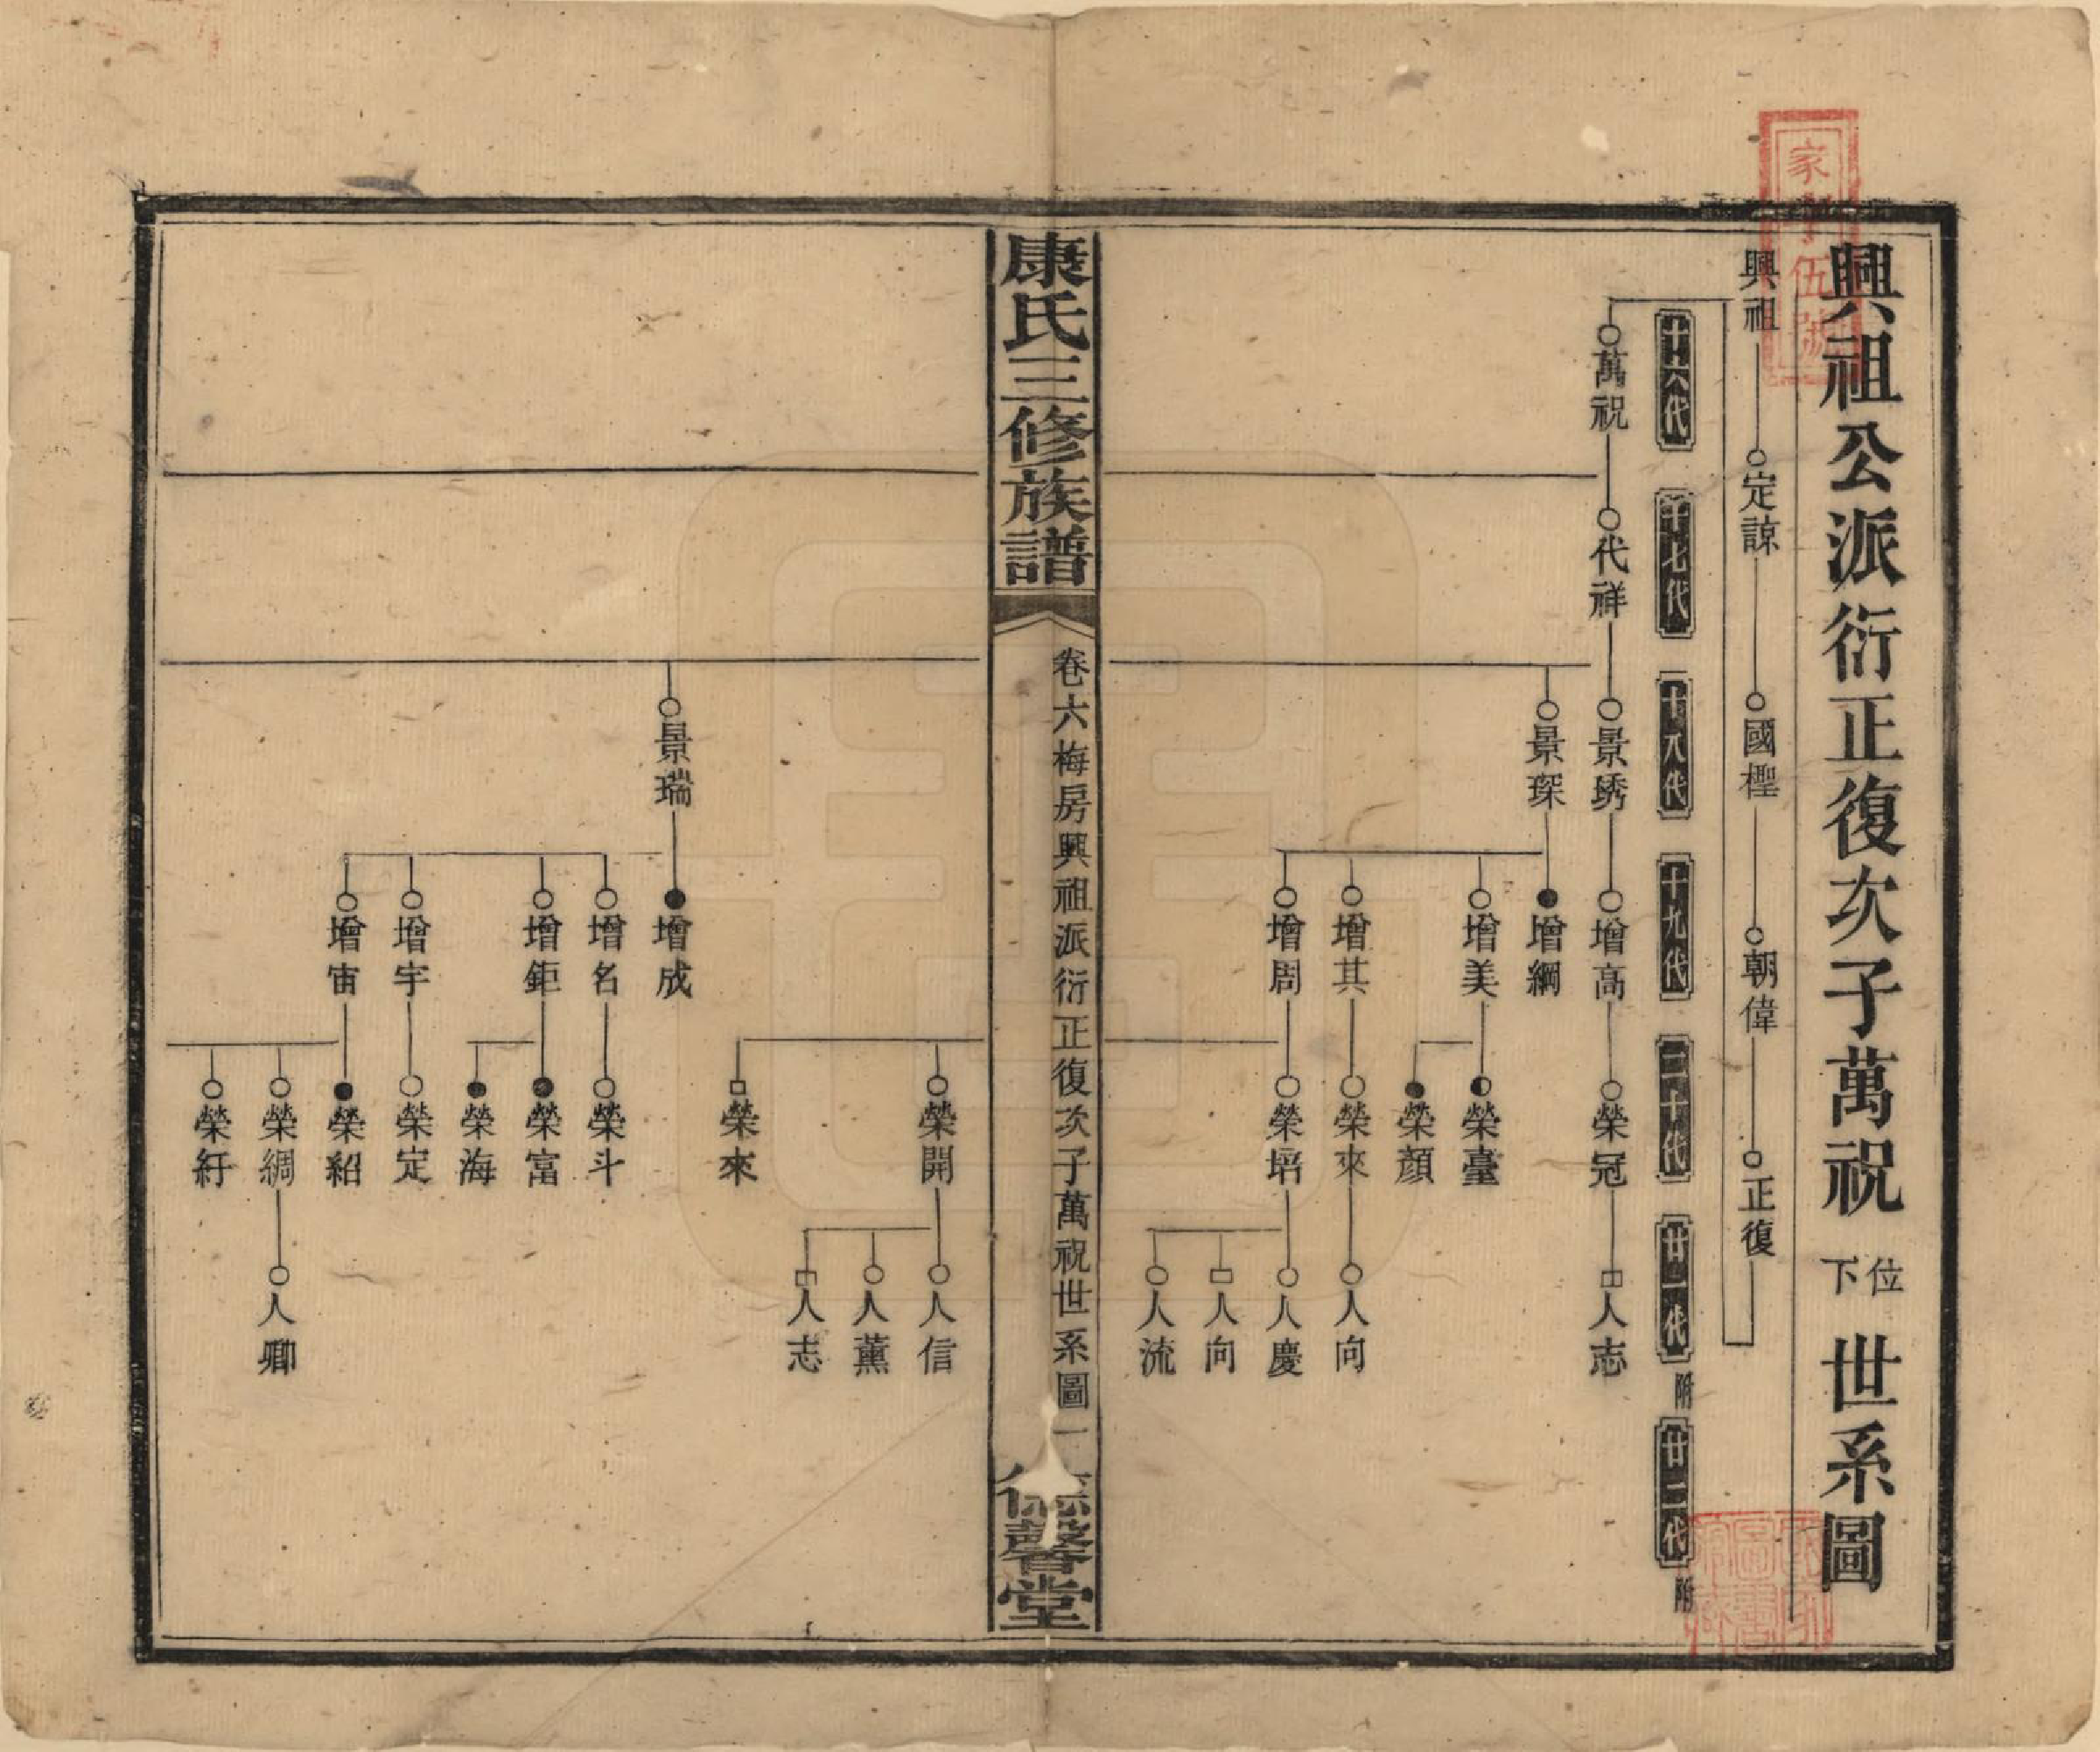 興祖公派衍正復次子萬祝位下世系圖
興祖 定諒 國樫 朝偉 正復
十六代 十七代 十八代 十九代 二十代 廿一代 附 廿二代 附
萬祝 代祥 景琇 增高 榮冠 人志
景琛 增綱
增美 榮臺
榮顏
增其 榮來 人向
增周 榮培 人慶
人向
人流
康氏三修族譜 卷六梅房興祖派衍正復次子萬祝世系圖 一 德馨堂
榮開 人信
人薰
人志
榮來
景瑞 增成
增名 榮斗
增鉅 榮富
榮海
增宇 榮定
增宙 榮紹
榮綢 人卿
榮紆